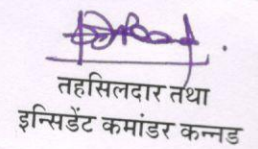 तहसिलदार तथा
इन्सिडेंट कमांडर कन्नड